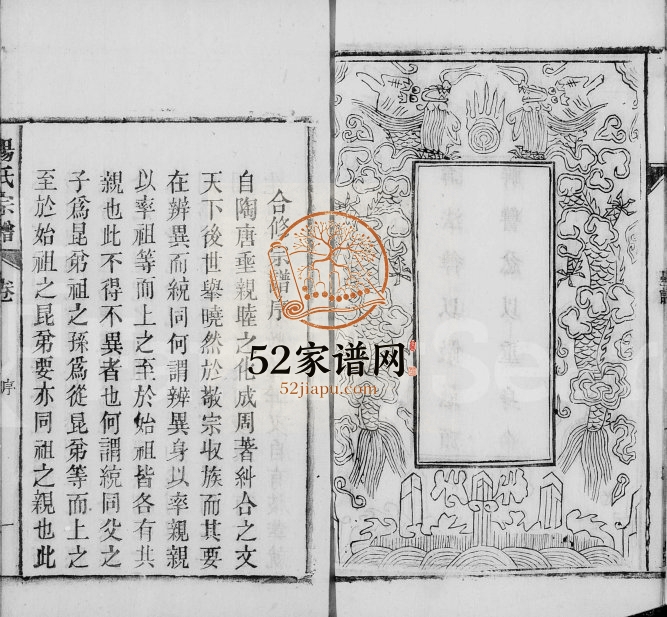 合修宗譜序
自陶唐垂親睦之化成周著糾合之文
天下後世舉曉然於敬宗收族而其要
在辨異而統同何謂辨異身以率親親
以率祖等而上之至於始祖皆各有其
親也此不得不異者也何謂統同父之
子爲昆弟祖之孫爲從昆弟等而上之
至於始祖之昆弟要亦同祖之親也此
楊氏宗譜
卷
序
一
52家谱网
52jiapu.com